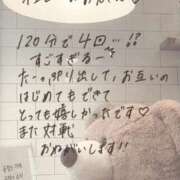 120分で4回…!?
すごすぎるー
たーっぷり出して、お互いの
はじめてもできて
とっても嬉しかったです♡
また対戦
おねがいします!!